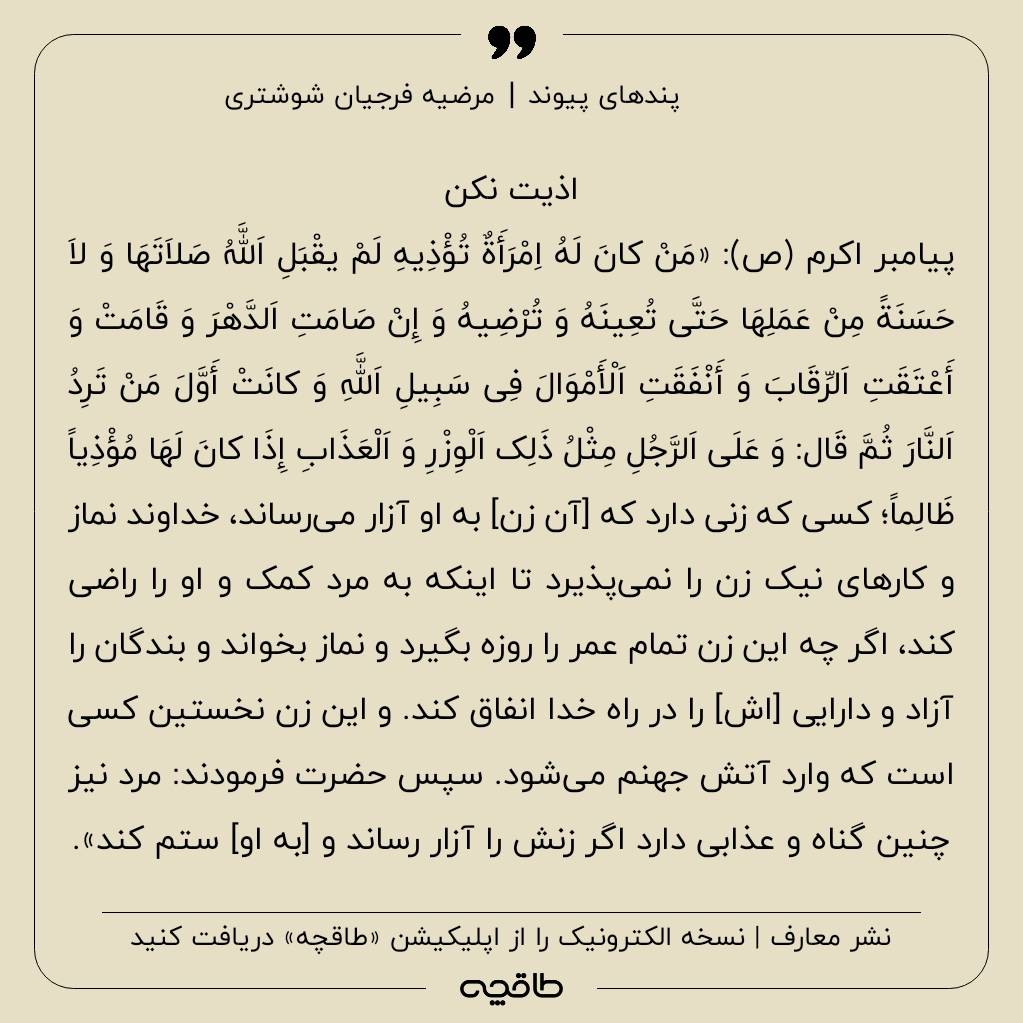 پندهای پیوند | مرضیه فرجیان شوشتری
اذیت نکن
پیامبر اکرم (ص): «مَنْ کانَ لَهُ اِمْرَأَةٌ تُؤْذِیهِ لَمْ یقْبَلِ اَللَّهُ صَلاَتَهَا وَ لاَ
حَسَنَةً مِنْ عَمَلِهَا حَتَّی تُعِینَهُ وَ تُرْضِیهُ وَ إِنْ صَامَتِ اَلدَّهْرَ وَ قَامَتْ وَ
أَعْتَقَتِ اَلرِّقَابَ وَ أَنْفَقَتِ اَلْأَمْوَالَ فِی سَبِیلِ اَللَّهِ وَ کانَتْ أَوَّلَ مَنْ تَرِدُ
اَلنَّارَ ثُمَّ قَال: وَ عَلَی اَلرَّجُلِ مِثْلُ ذَلِک اَلْوِزْرِ وَ اَلْعَذَابِ إِذَا کانَ لَهَا مُؤْذِیاً
ظَالِماً؛ کسی که زنی دارد که [آن زن] به او آزار می‌رساند، خداوند نماز
و کارهای نیک زن را نمی‌پذیرد تا اینکه به مرد کمک و او را راضی
کند، اگر چه این زن تمام عمر را روزه بگیرد و نماز بخواند و بندگان را
آزاد و دارایی [اش] را در راه خدا انفاق کند. و این زن نخستین کسی
است که وارد آتش جهنم می‌شود. سپس حضرت فرمودند: مرد نیز
چنین گناه و عذابی دارد اگر زنش را آزار رساند و [به او] ستم کند».
نشر معارف | نسخه الکترونیک را از اپلیکیشن «طاقچه» دریافت کنید
طاقچه